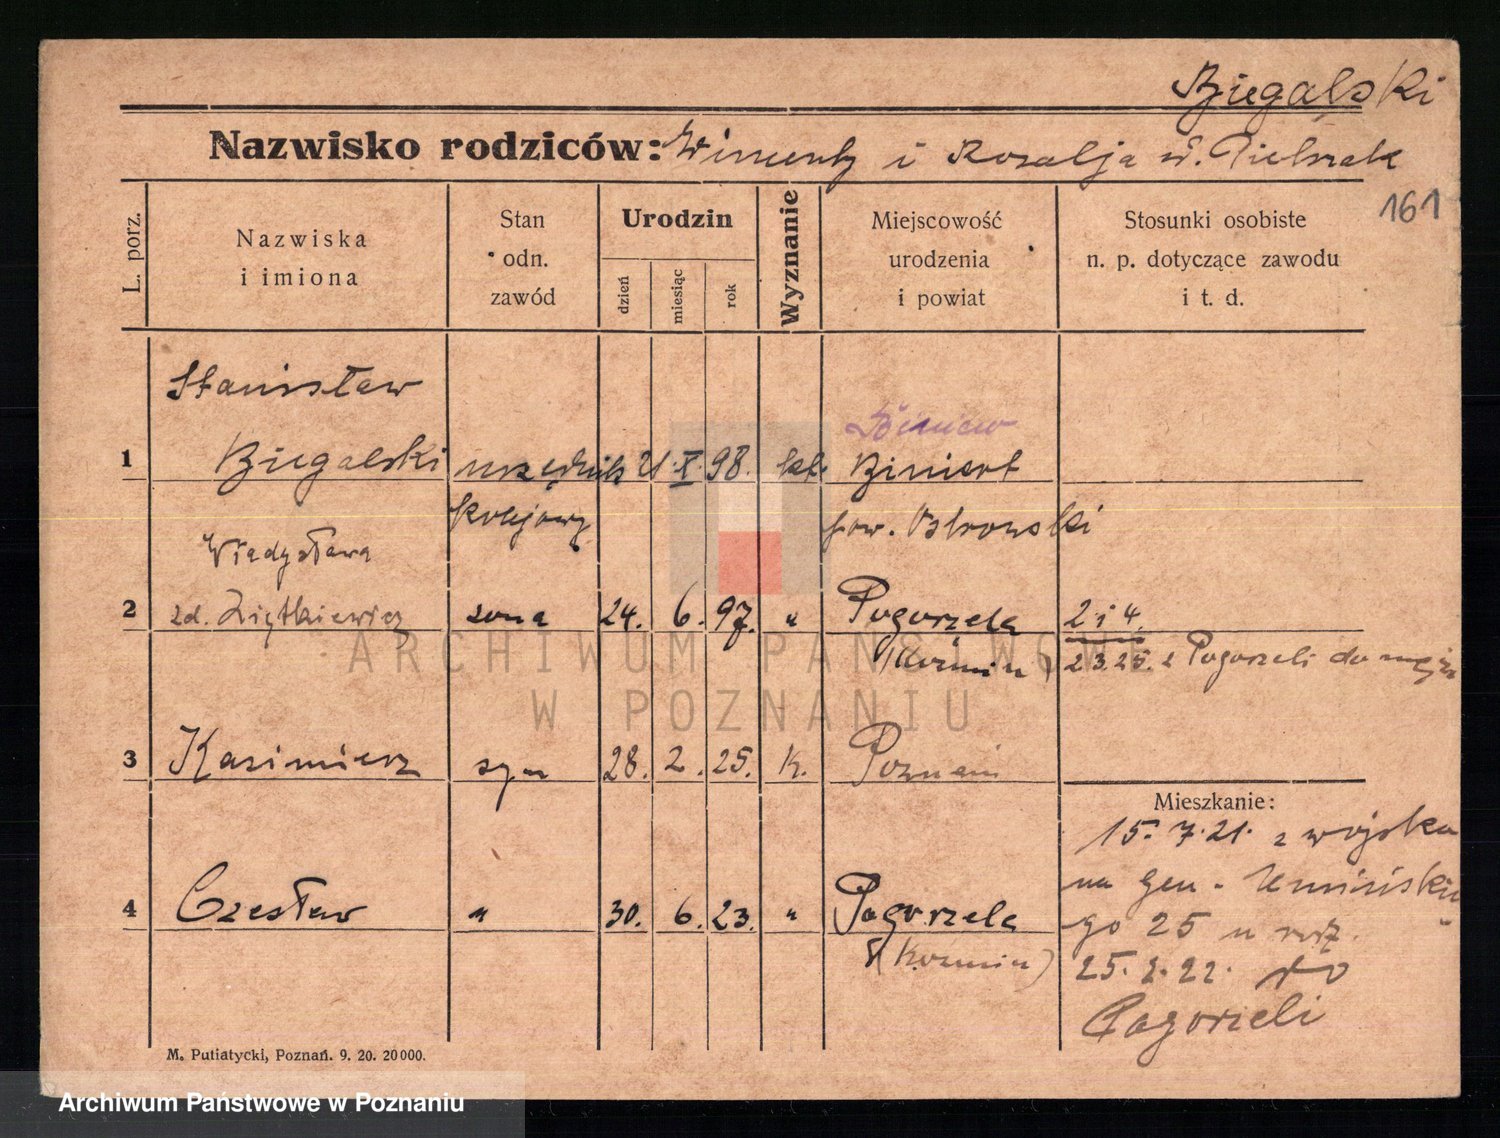 Biegalski
Nazwisko rodziców: Wincenty i Rozalja ur. Pietrzak
161
L. porz.
Nazwiska
i imiona
Stan
odn.
zawód
Urodzin
dzień
miesiąc
rok
Wyznanie
Miejscowość
urodzenia
i powiat
Stosunki osobiste
n. p. dotyczące zawodu
i t. d.
Stanisław
1 Biegalski urzędnik 21. X. 98. kt.
kolejowy pow. Ostrowski
Władysława
2 zd. Ziętkiewicz żona 24. 6. 97. " Pogorzela 2 i 4.
(Koźmin) 2 3. 25. z Pogorzeli do męża
3 Kazimierz syn 28. 2. 25. K. Poznań
Mieszkanie:
15. 7. 21. z wojska
na Gen. Umińskie
4 Czesław " 30. 6. 23. " Pogorzela
go 25 u
(Koźmin)
25. 2. 22. do
Pogorzeli
M. Putiatycki, Poznań. 9. 20. 20000.
ARCHIWUM PAŃSTWOWE
W POZNANIU
Archiwum Państwowe w Poznaniu